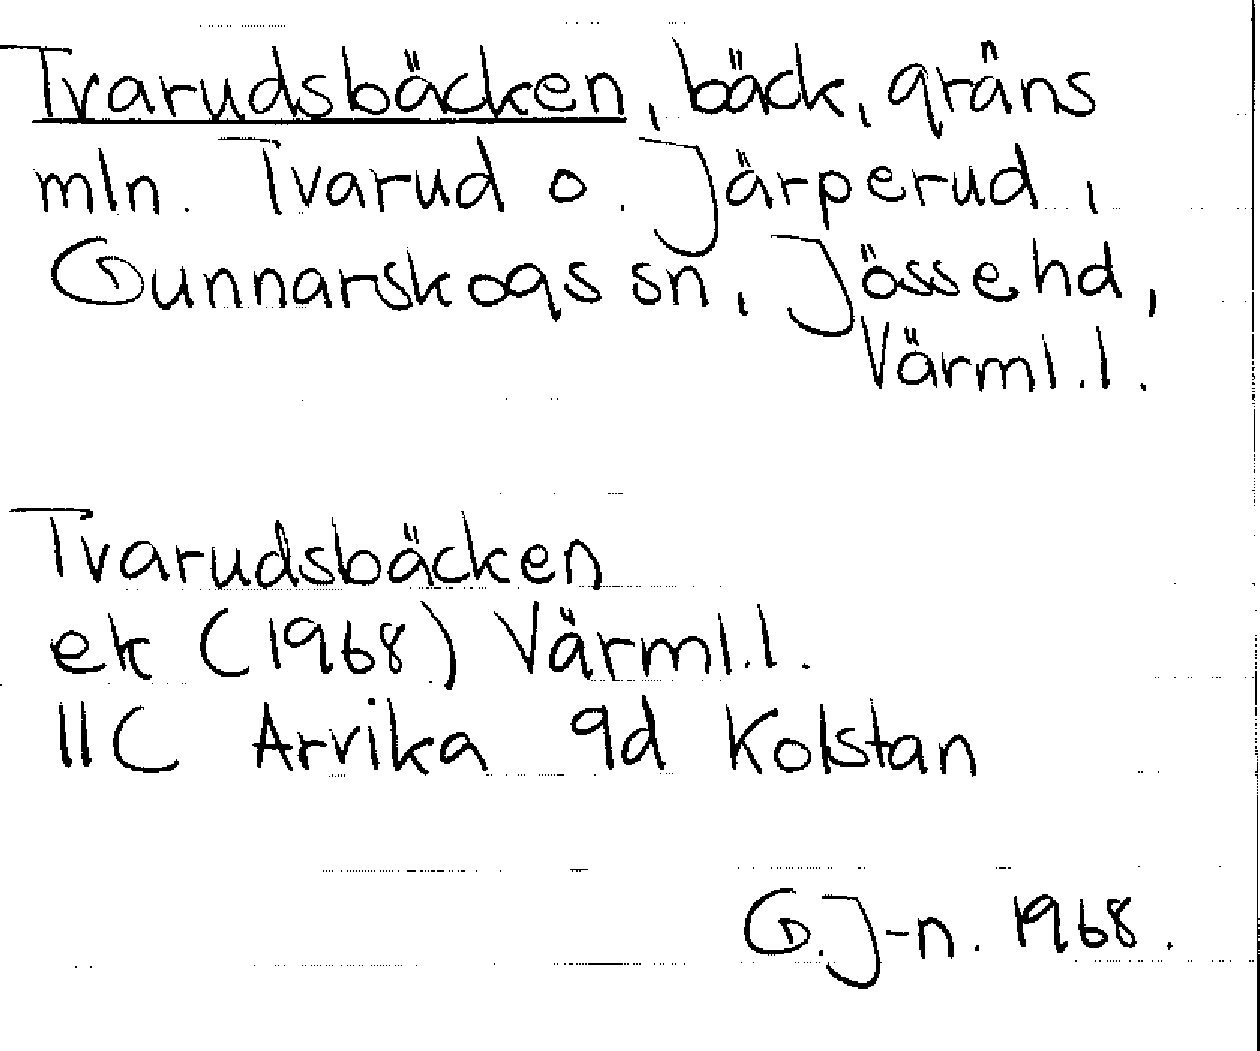 Tvarudsbäcken, bäck, gräns
mln. Tvarud o. Järperud i
Gunnarskogs sn, Jösse hd,
Värml.l.
Tvarudsbäcken
ek (1968) Värml.l.
11C Arvika 9d Kolstan
G.J-n. 1968.